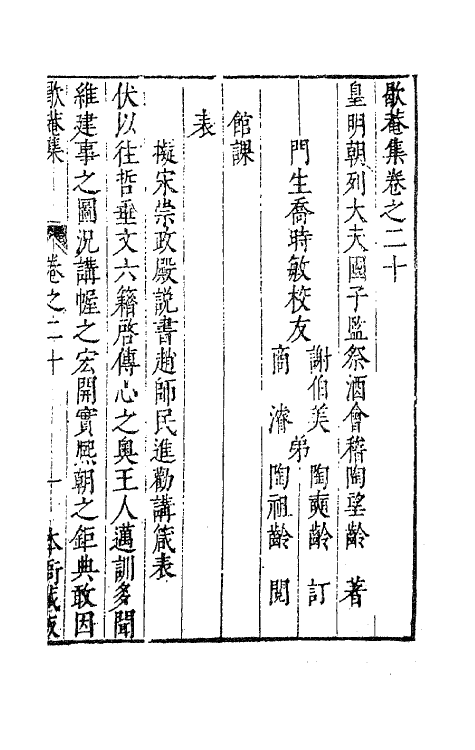 歇菴集卷之二十
皇明朝列大夫國子監祭酒會稽陶望齡　著
門生喬時敏校友　謝伯美　弟　陶奭齡　訂
商　濬　陶祖齡　閱
館課
表
擬宋崇政殿說書趙師民進勸講箴表
伏以往哲垂文六籍啓傳心之奧王人邁訓多聞
維建事之圖況講幄之宏開實熙朝之鉅典敢因
歇菴集　卷之二十　一　本衙藏板